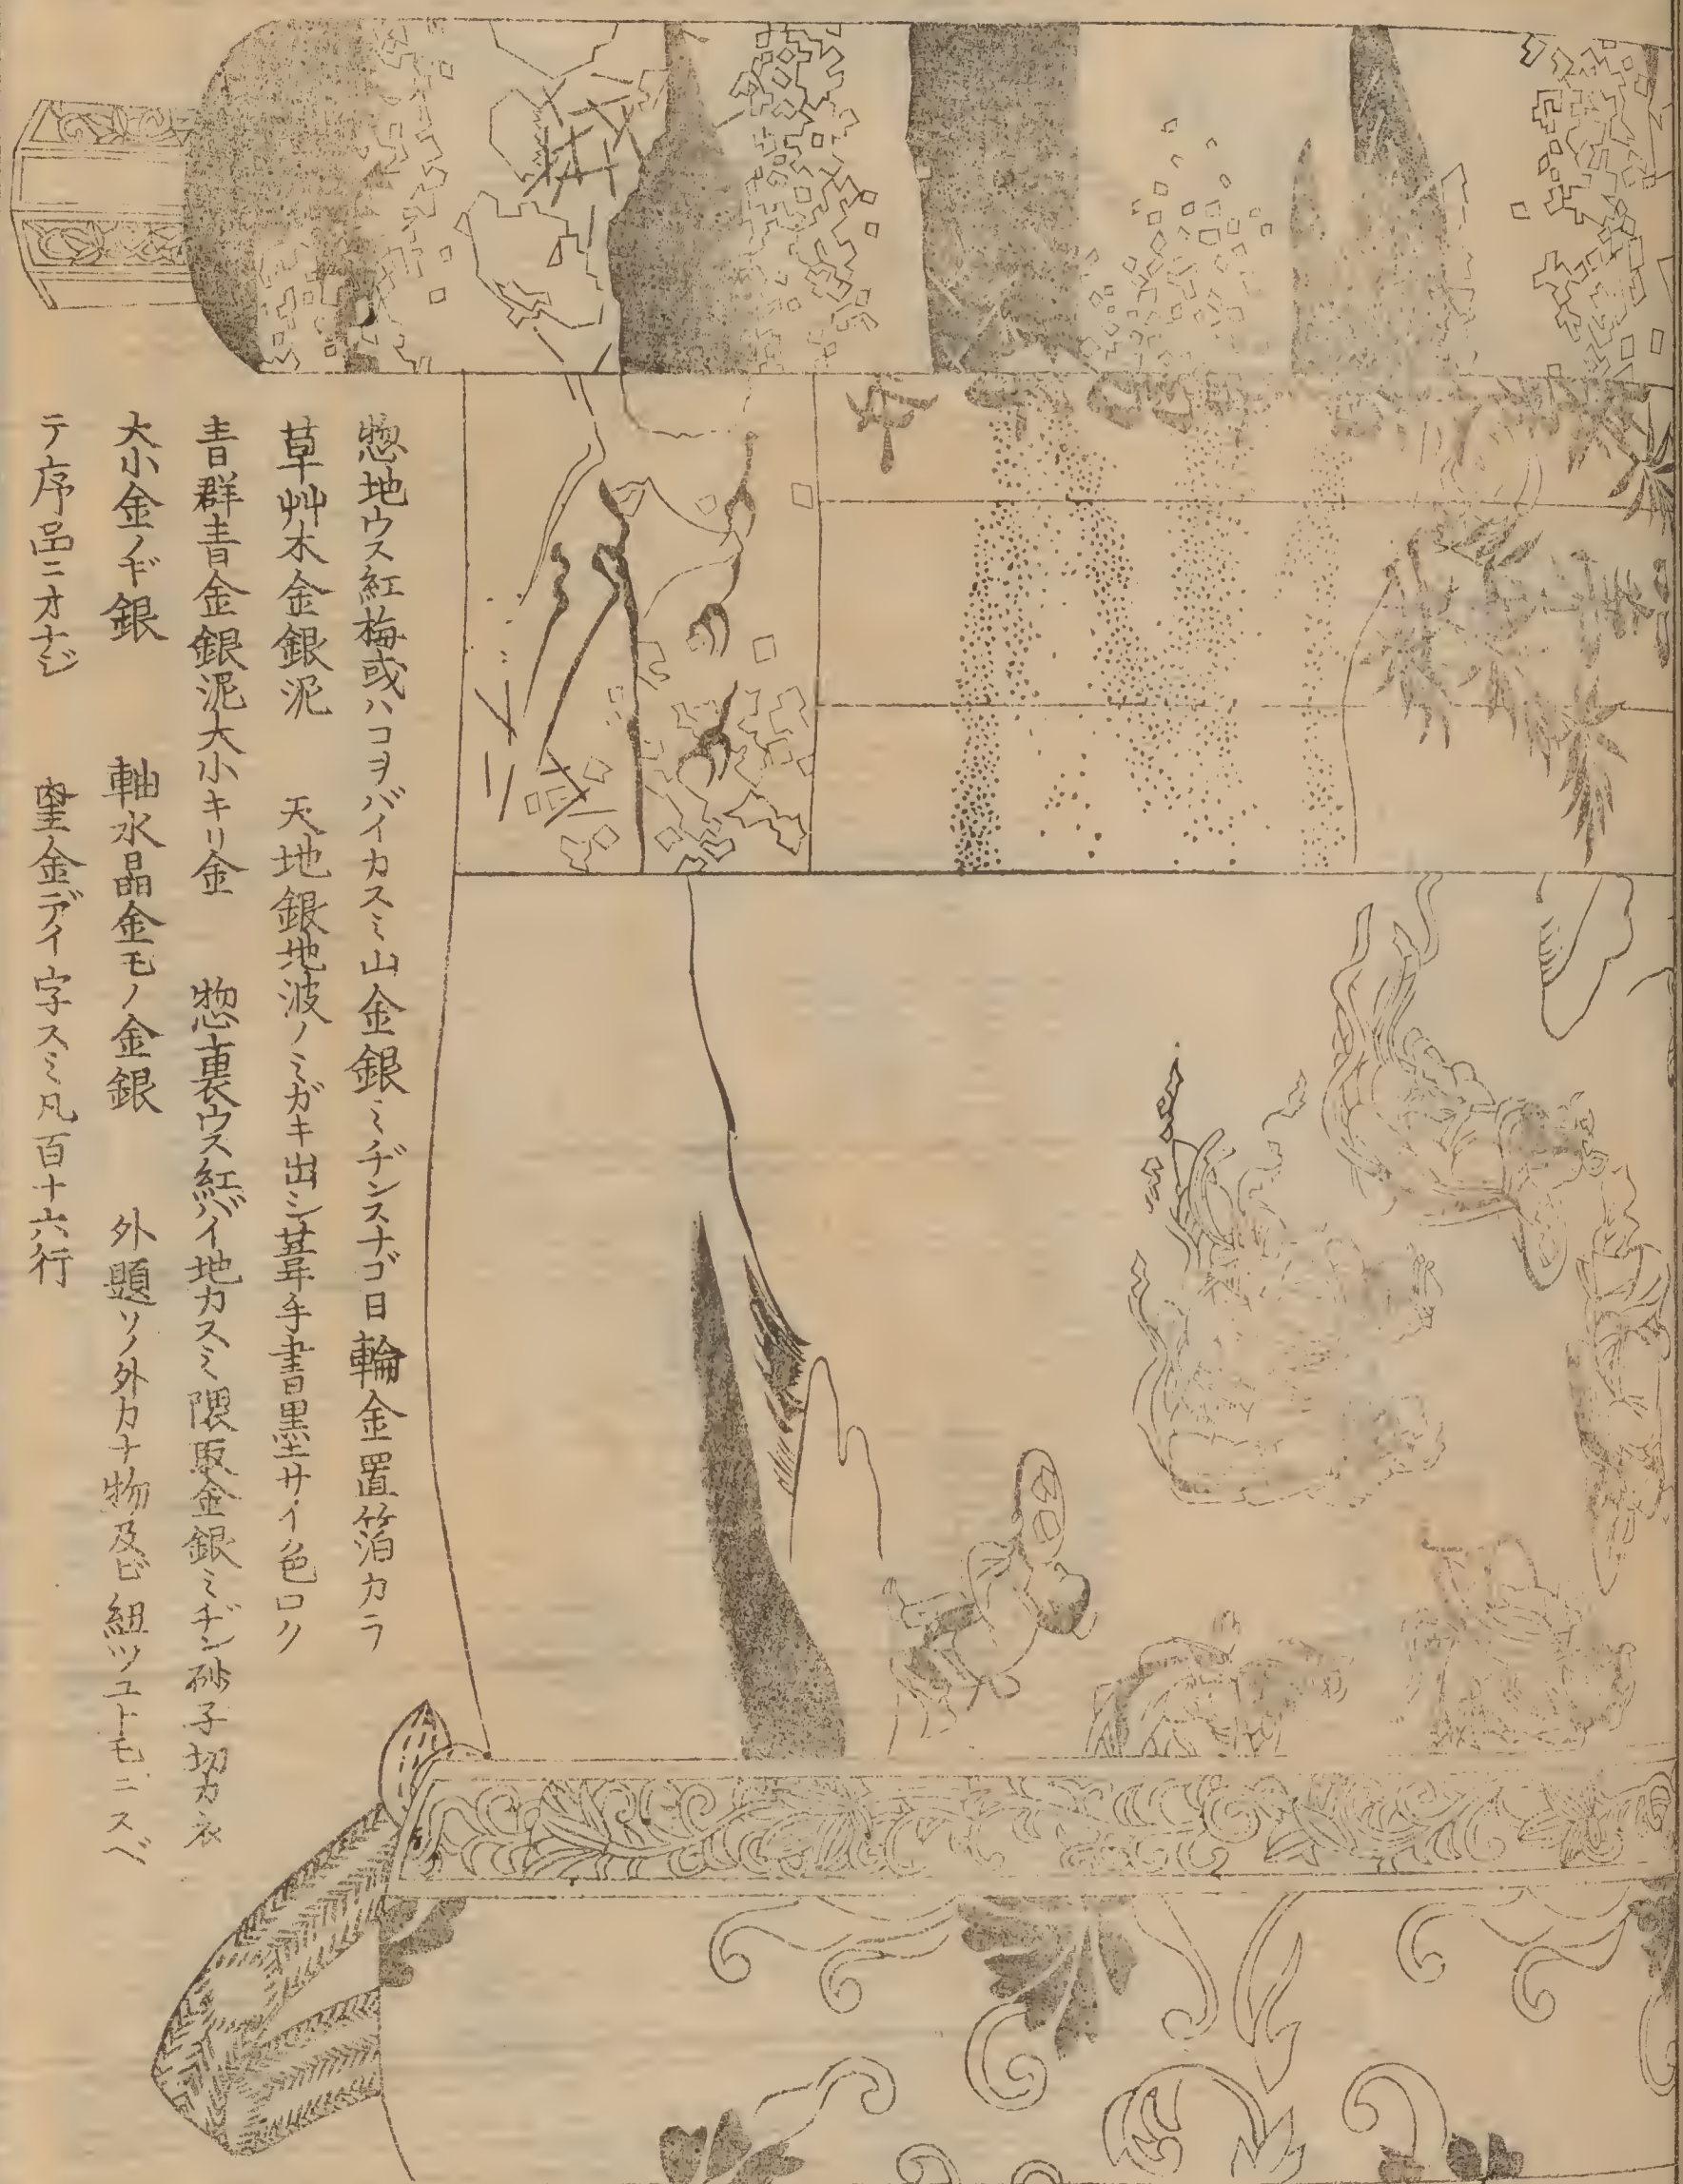 惣地ウス紅梅或ハコヲバイカスミ山金銀ミヂンスナゴ日輪金置箔カラ
草艸木金銀泥 天地銀地波ノミガキ出シ葦手書墨サイ色ロク
青群青金銀泥大小キリ金 惣裏ウス紅バイ地カスミ隈取金銀ミヂン砂子切カネ
大小金ノギ銀 軸水晶金モノ金銀 外題ソノ外カナ物及ビ紐ツユトモニスベ
テ序品ニオナジ 金デイ字スミ凡百十六行